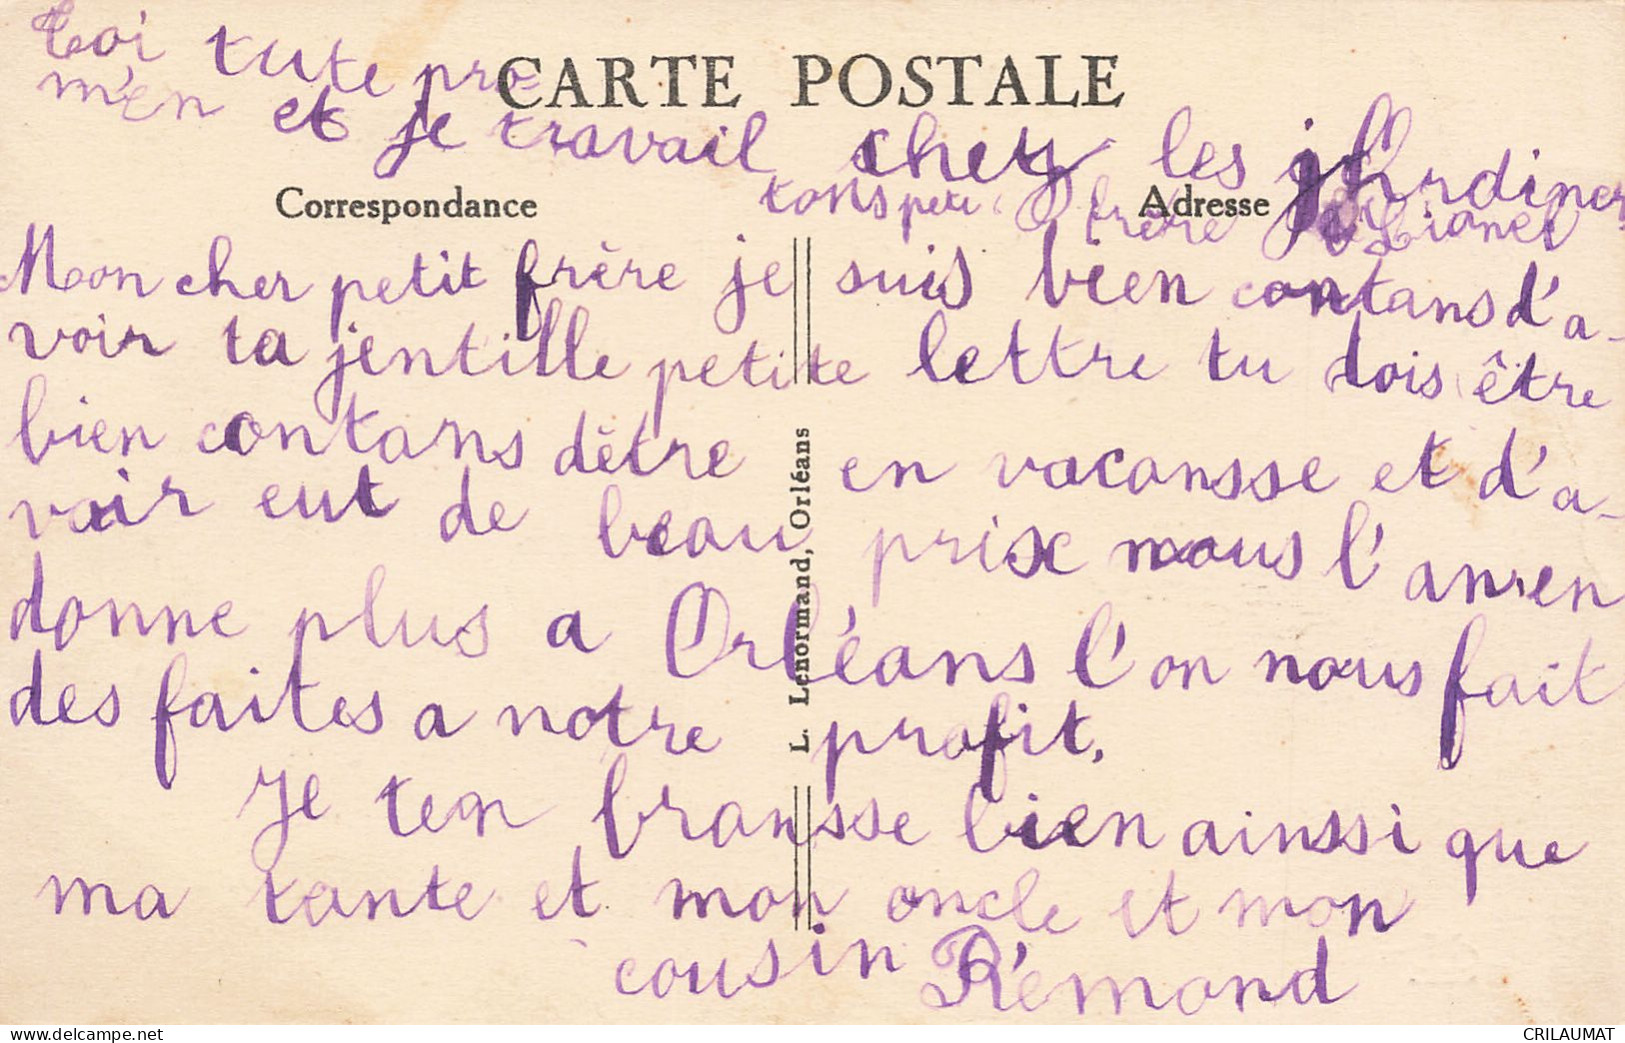 toi tu te pro-
m'en et je travail chez les jhrdiner
CARTE POSTALE
tons peti frère Lionel
Correspondance
Adresse
Mon cher petit frère je suis bien contans d'a-
voir ta jentille petite lettre tu dois être
bien contans dètre en vacansse et d'a-
voir eut de beau prix nous l'anren
donne plus a Orléans l'on nous fait
des faites a notre profit.
Je ten bransse bien ainssi que
ma tante et mon oncle et mon
cousin Rémond
L. Lenormand, Orléans
CRILAUMAT